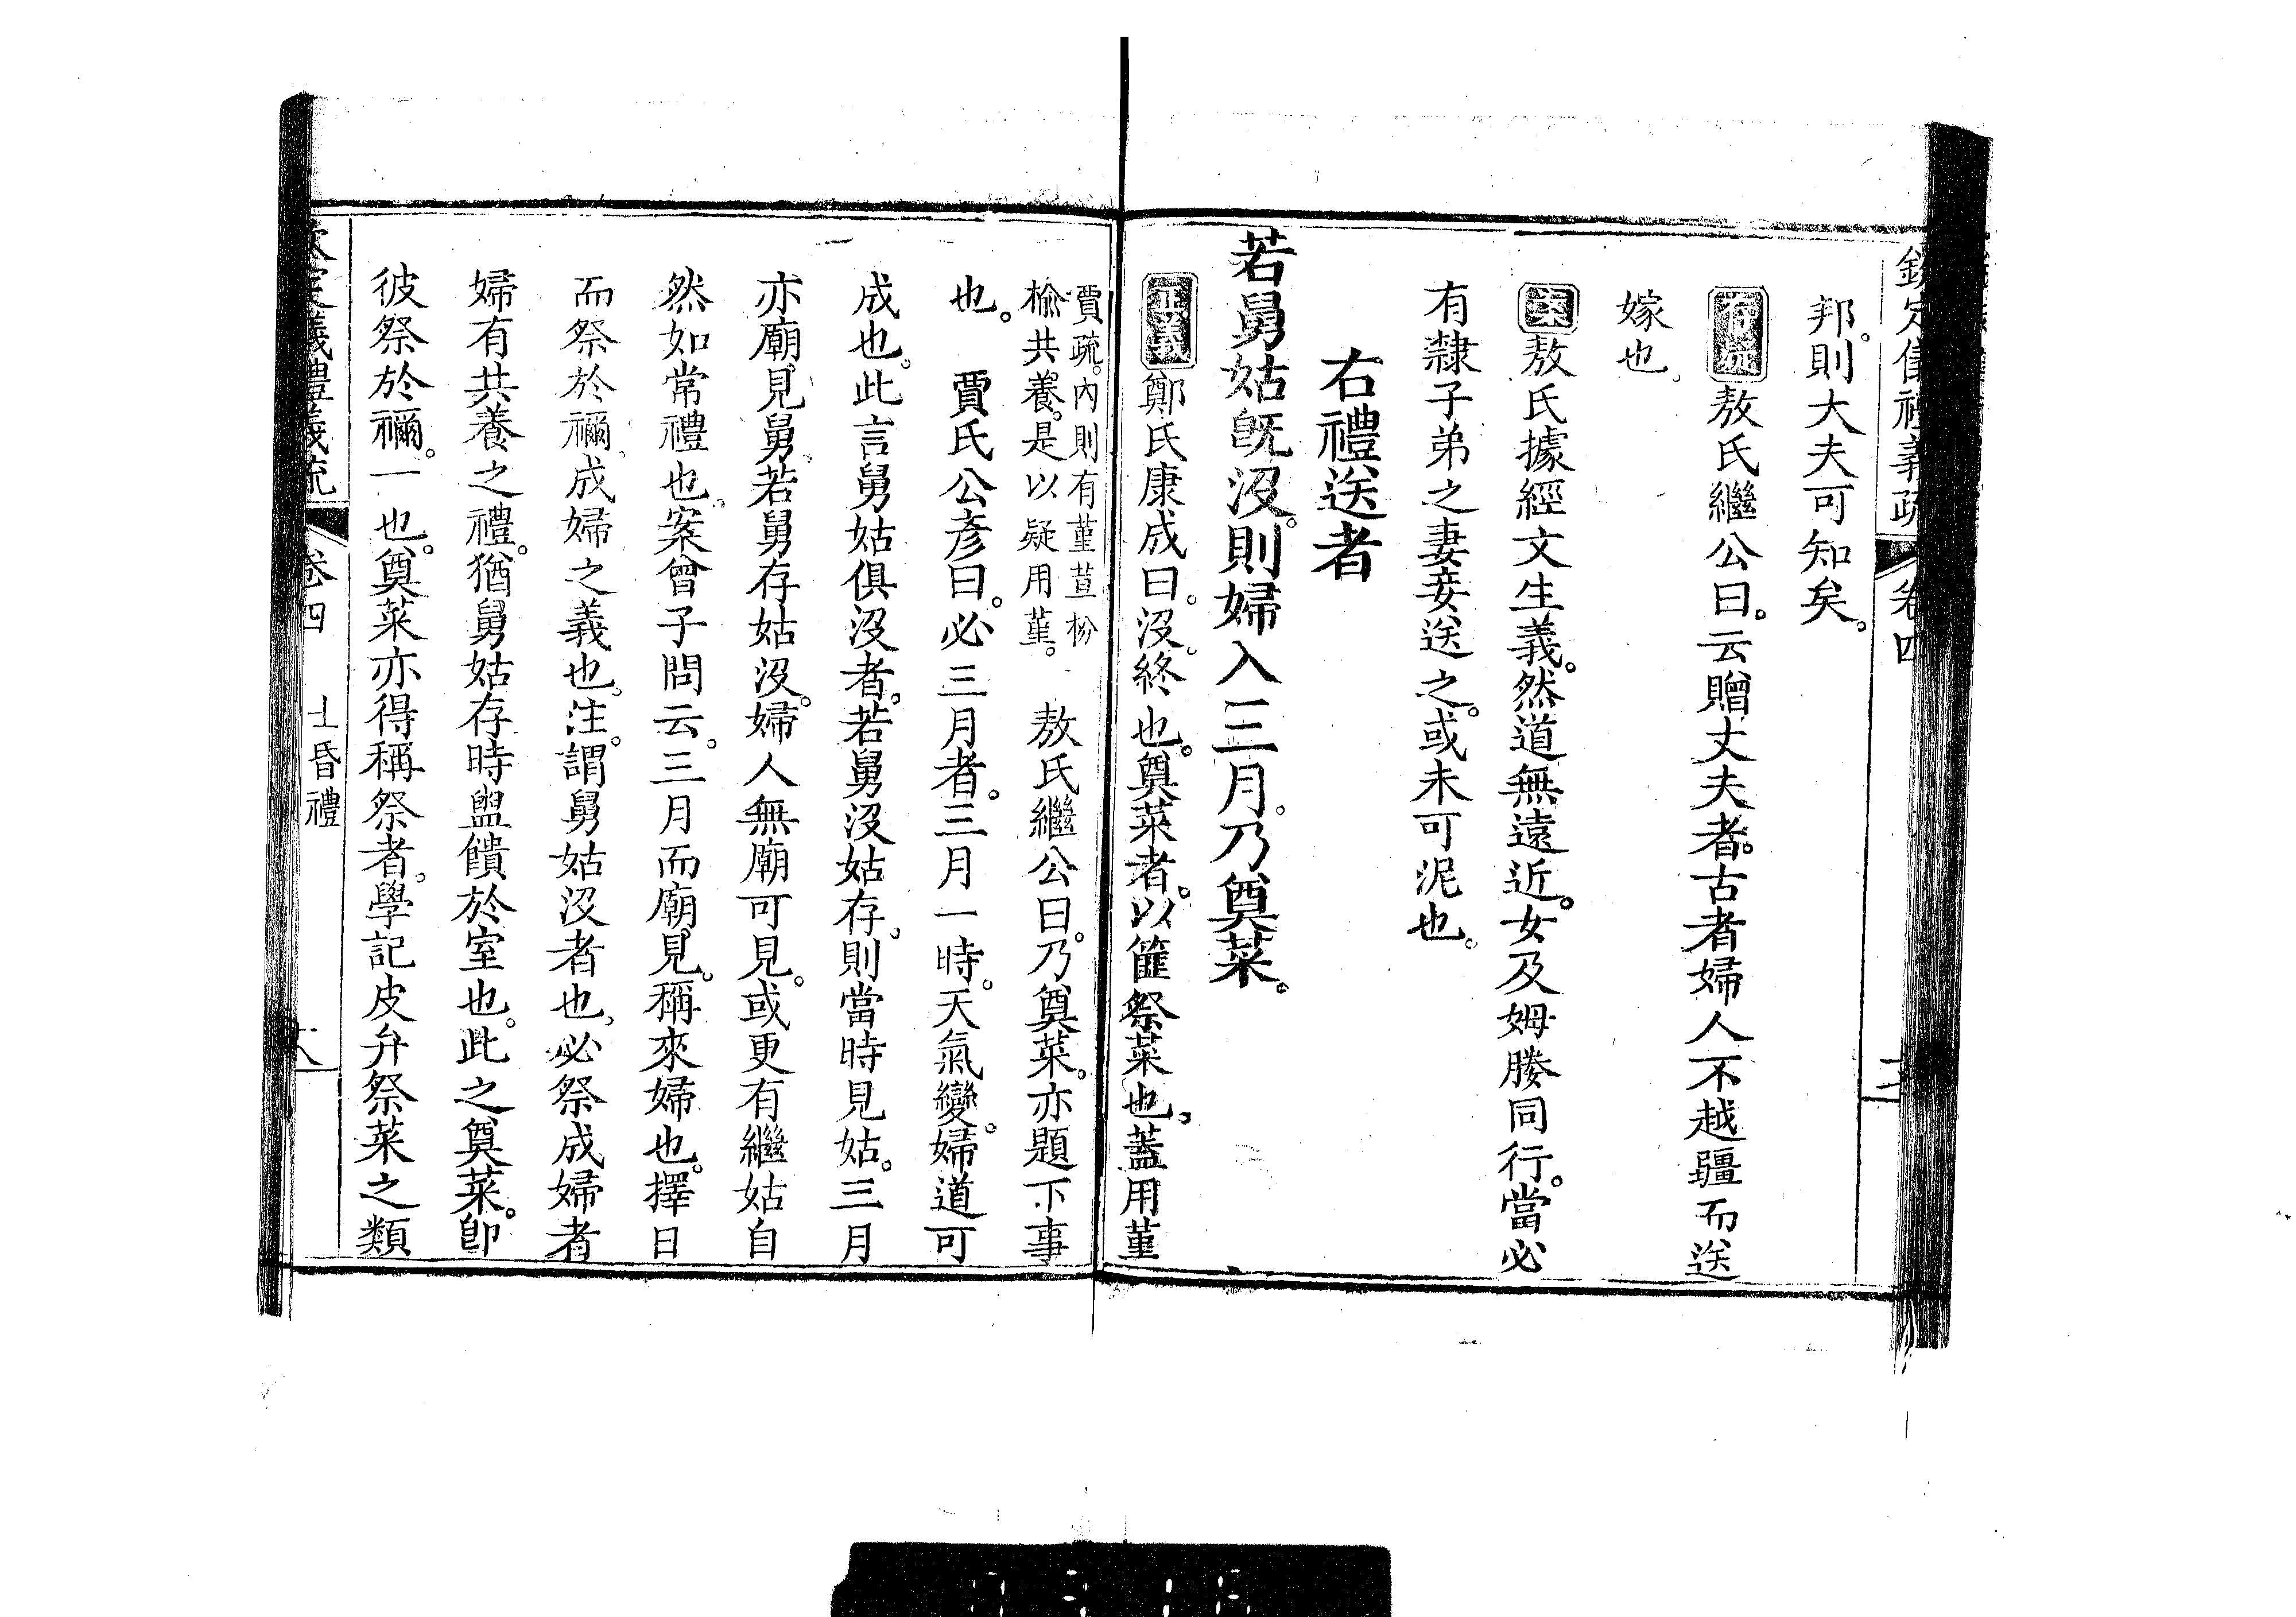 欽定儀禮義疏 卷四
邦。則大夫可知矣。
存疑 敖氏繼公曰。云贈丈夫者。古者婦人不越疆而送
嫁也。
案 敖氏據經文生義。然道無遠近。女及姆媵同行。當必
有隸子弟之妻妾送之。或未可泥也。
右禮送者
若舅姑旣沒。則婦入三月。乃奠菜。
正義 鄭氏康成曰。沒終也。奠菜者。以篚祭菜也。蓋用菫
賈疏。內則有菫荁枌
楡共養。是以疑用菫。
敖氏繼公曰。乃奠菜。亦題下事
也。 賈氏公彥曰。必三月者。三月一時。天氣變。婦道可
成也。此言舅姑俱沒者。若舅沒姑存。則當時見姑。三月
亦廟見舅。若舅存姑沒。婦人無廟可見。或更有繼姑自
然如常禮也。案曾子問云。三月而廟見。稱來婦也。擇日
而祭於禰。成婦之義也。注。謂舅姑沒者也。必祭成婦者
婦有共養之禮。猶舅姑存時盥饋於室也。此之奠菜。卽
彼祭於禰。一也。奠菜亦得稱祭者。學記皮弁祭菜之類
欽定儀禮義疏 卷四 士昏禮